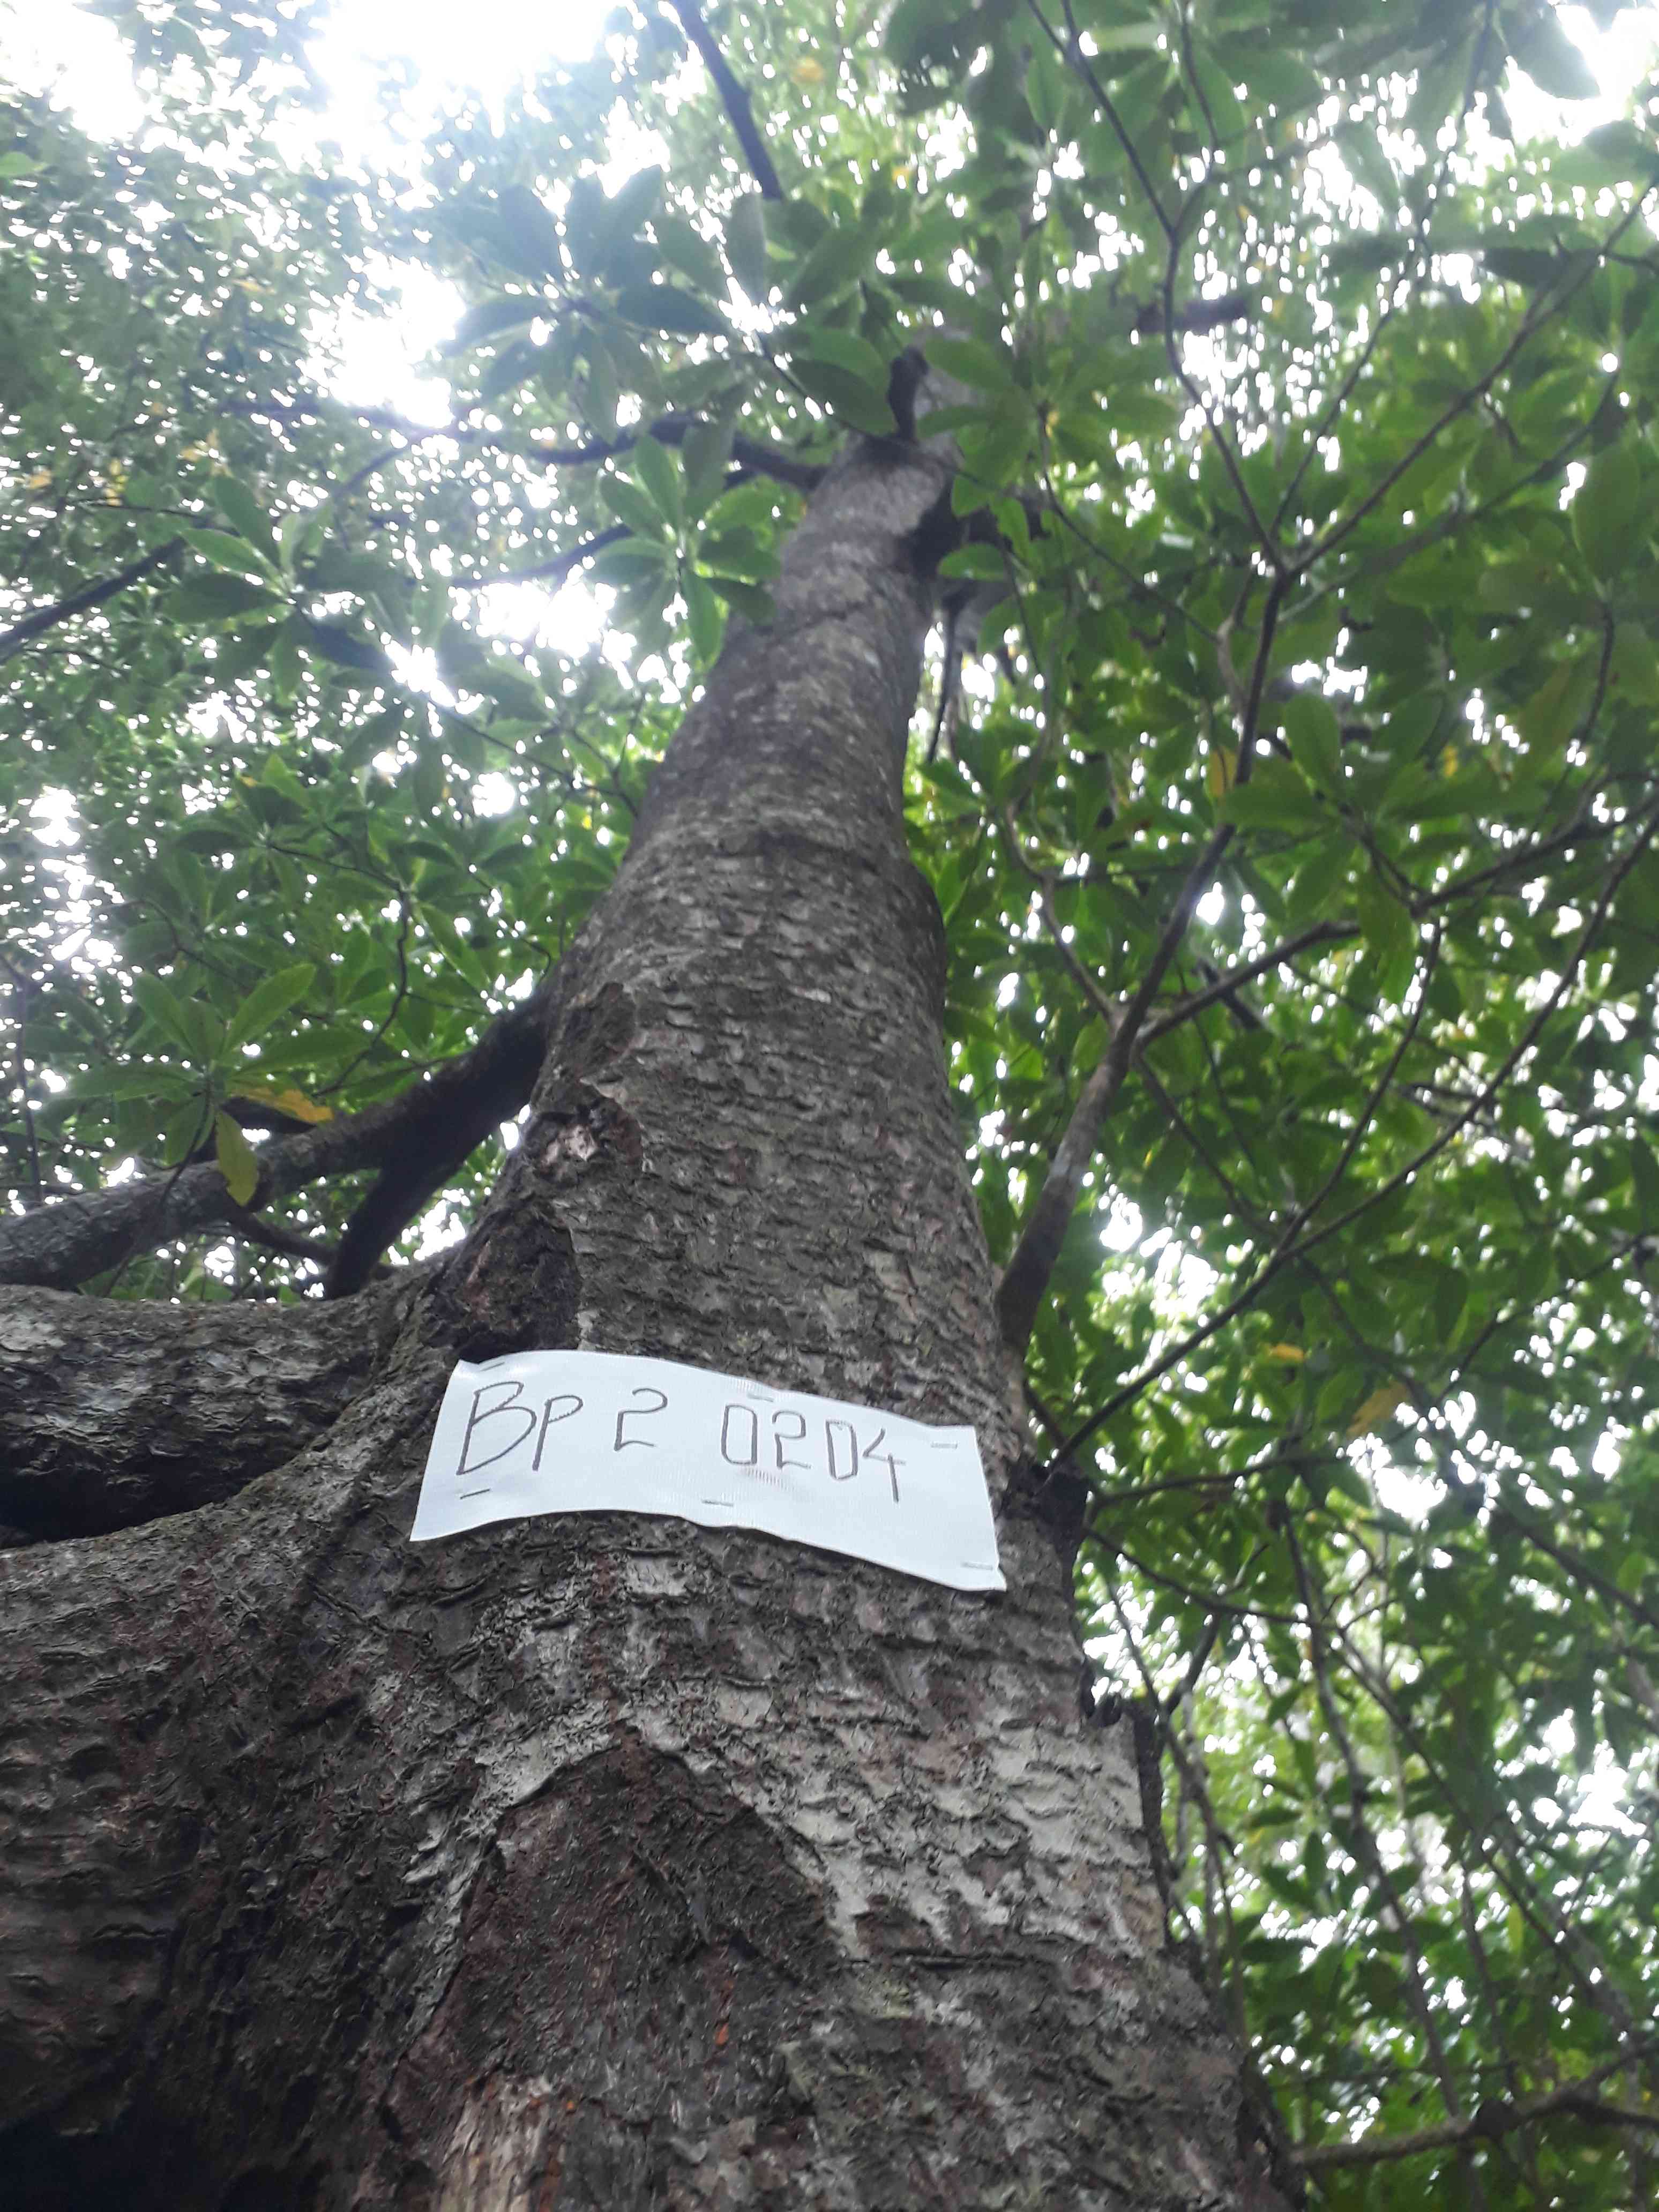 BP 2 0204